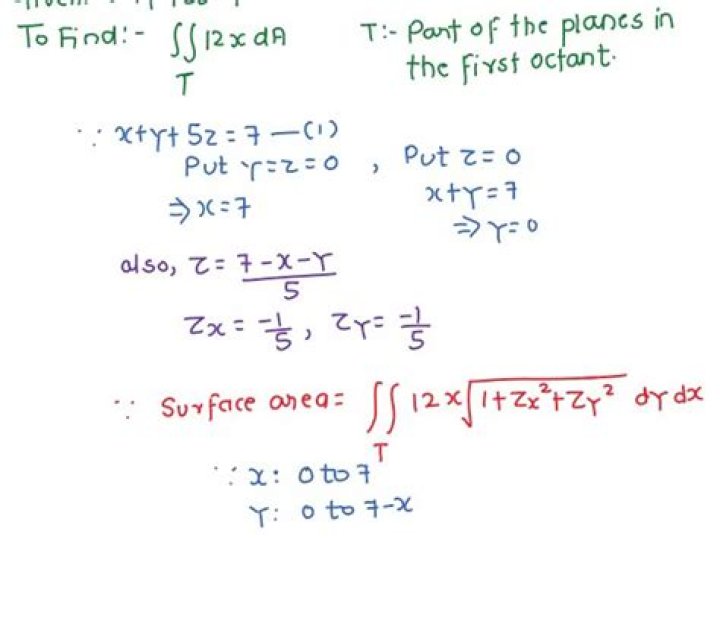 To Find:- ∬ 12x dA T:- Part of the planes in
T the first octant.
∵ x+y+5z=7 —(1)
Put y=z=0 , Put z=0
⇒ x=7 x+y=7
⇒ y=0
also, z = 7-x-y
5
zx = -1/5 , zy = -1/5
∵ Surface area = ∬ 12x √1+zx²+zy² dy dx
T
∵ x: 0 to 7
y: 0 to 7-x